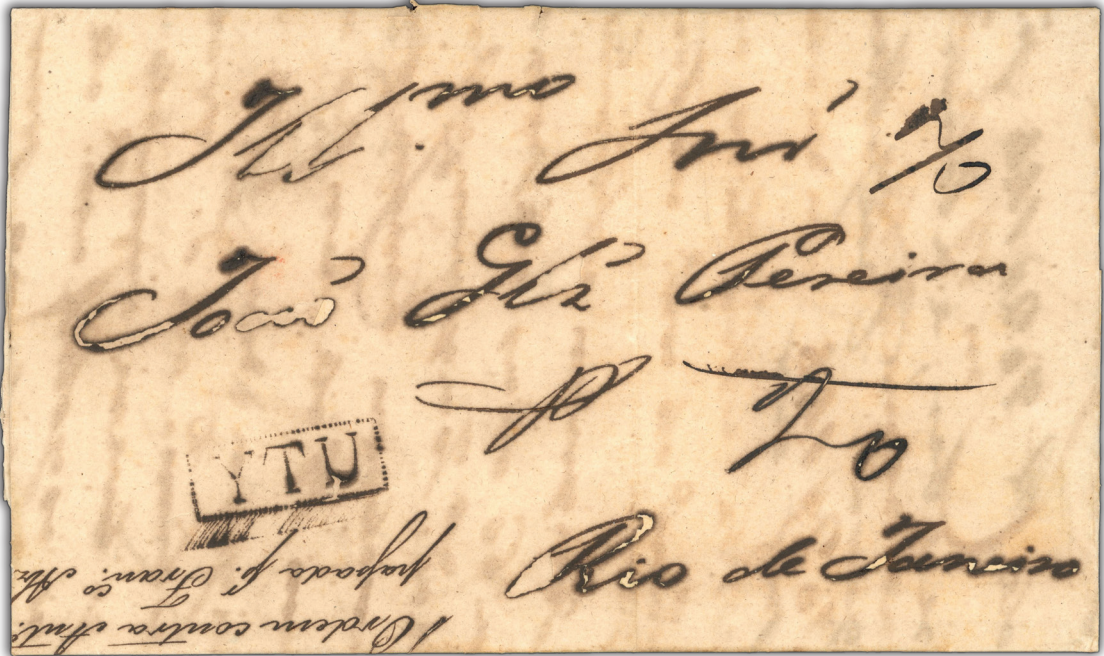 Ill.mo Snr̃
João Glz̃ Pereira
YTU
Rio de Janeiro
1 Ordem contra Ant.
papada p. Fran.co